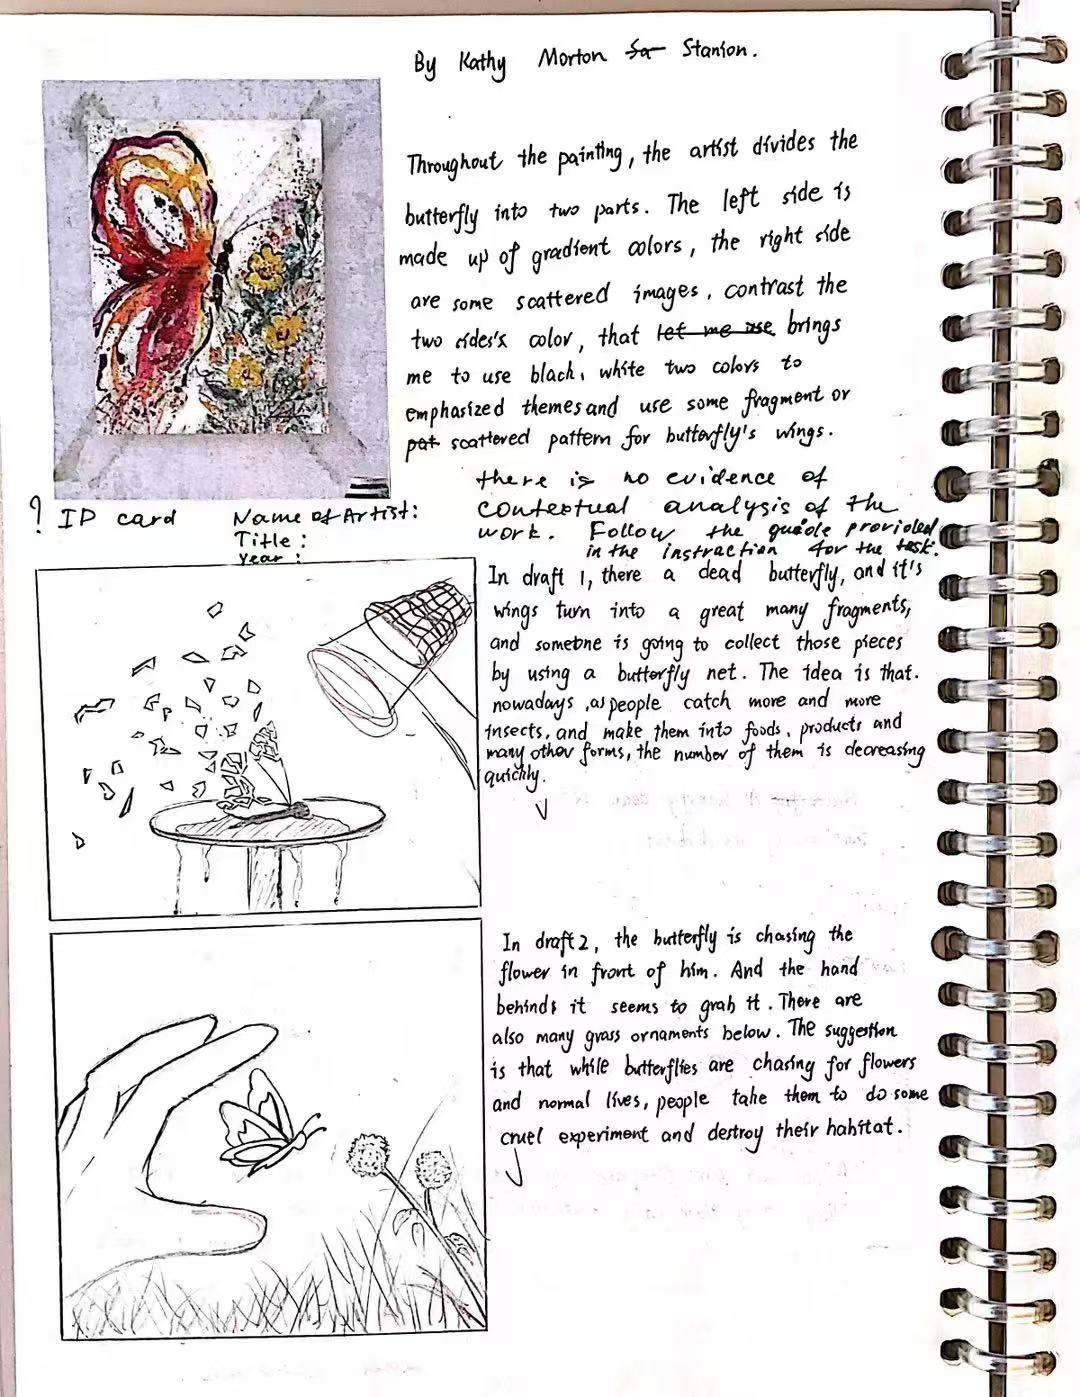 By Kathy Morton Sa Stanion.
Throughout the painting, the artist divides the
butterfly into two parts. The left side is
made up of gradient colors, the right side
are some scattered images, contrast the
two sides's color, that let me use brings
me to use black, white two colors to
emphasized themes and use some fragment or
pat scattered pattern for butterfly's wings.
there is no evidence of
contextual analysis of the
work. Follow the guide provided
in the instraction for the task.
? ID card Name of Artist:
Title :
Year :
In draft 1, there a dead butterfly, and it's
wings turn into a great many fragments,
and someone is going to collect those pieces
by using a butterfly net. The idea is that.
nowadays, as people catch more and more
insects, and make them into foods, products and
many other forms, the number of them is decreasing
quickly.
In draft2, the butterfly is chasing the
flower in front of him. And the hand
behinds it seems to grab it. There are
also many grass ornaments below. The suggestion
is that while butterflies are chasing for flowers
and normal lives, people take them to do some
cruel experiment and destroy their habitat.